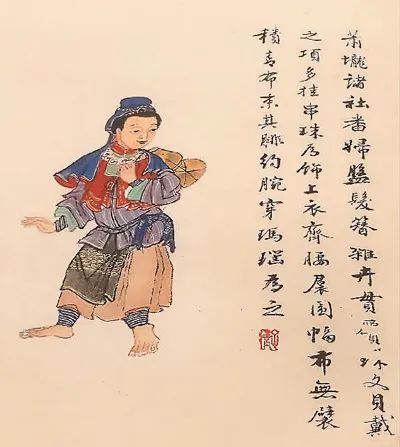 萧壠諸社番婦盤髮簪雜卉貫珠文貝戴
之項多挂串珠為飾上衣齊腰圍幅布無襞
積青布束其腓約腕穿瑪瑙為之